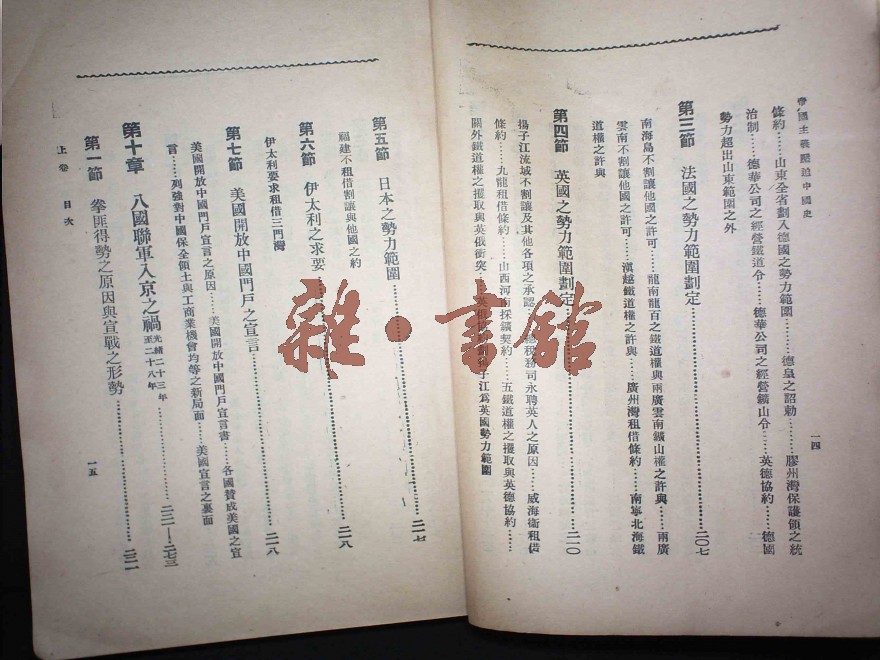 帝國主義壓迫中國史
一四
條約……山東全省劃入德國之勢力範圍……德皇之詔勅……膠州灣保護領之統
治制……德華公司之經營鐵道令……德華公司之經營鑛山令……英德協約……德國
勢力超出山東範圍之外
第三節 法國之勢力範圍劃定……二〇七
南海島不割讓他國之許可……龍南龍百之鐵道權與兩廣雲南鑛山權之許與……兩廣
雲南不割讓他國之許可……滇越鐵道權之許與……廣州灣租借條約……南寧北海鐵
道權之許與
第四節 英國之勢力範圍劃定……二一〇
揚子江流域不割讓及其他各項之承認……總稅務司永聘英人之原因……威海衞租借
條約……九龍租借條約……山西河南採鑛契約……五鐵道權之攫取與英德協約……
關外鐵道權之攫取與英俄衝突……英俄協約劃揚子江爲英國勢力範圍
第五節 日本之勢力範圍……二一七
福建不租借割讓與他國之約
第六節 伊太利之求要……二一八
伊太利要求租借三門灣
第七節 美國開放中國門戶之宣言……二一八
美國開放中國門戶宣言之原因……美國開放中國門戶宣言書……各國贊成美國之宣
言……列強對中國保全領土與工商業機會均等之新局面……美國宣言之裏面
第十章 八國聯軍入京之禍 光緒二十三年至二十八年……二二一—二七三
第一節 拳匪得勢之原因與宣戰之形勢……二二一
上卷 目次
一五
雜·書館